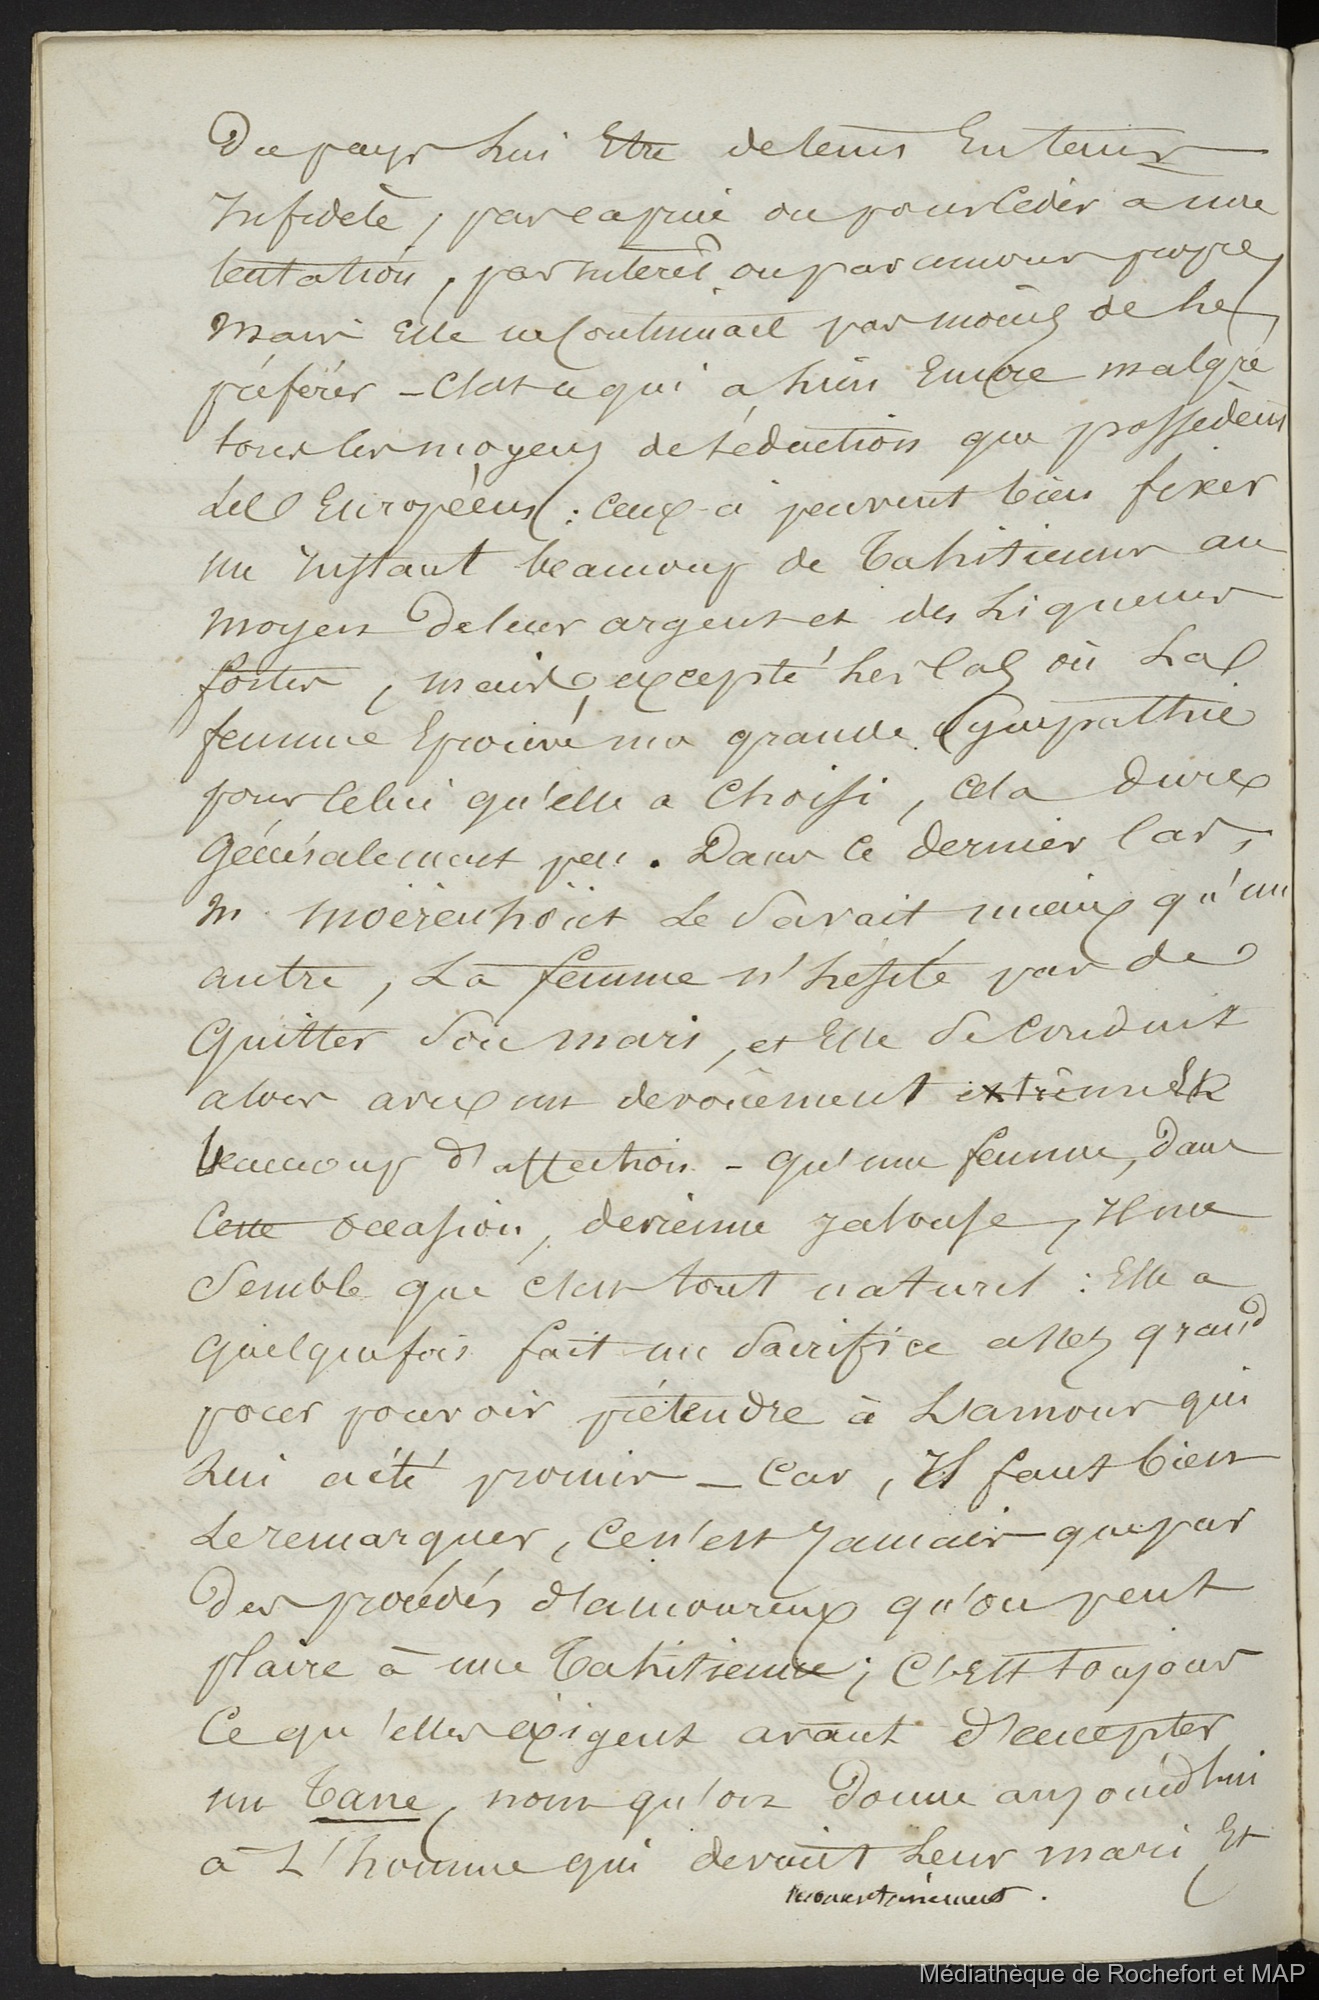 Du pays Lui Etre de tems En tems
Infidèle, par caprice ou pour Céder à une
tentation, par interêt ou par amour propre,
Mais Elle ne Continuait pas moins de Le
préférer – C'est ce qui a Lieu Encore malgré
tous les moyens de séduction que possedent
Les Européens : Ceux-ci peuvent bien fixer
un Instant beaucoup de Tahitiennes au
moyen De leur argent et des Liqueurs
fortes, mais, excepté Les Cas où La
femme Eprouve une grande Sympathie
pour Celui qu'elle a Choisi, Cela dure
Généralement peu. Dans Ce dernier Cas,
M. Moërenhoüt Le Savait mieux qu'un
autre, La femme n'hésite pas de
Quitter Son mari, et Elle Se Conduit
alors avec un dévouement extrême Et
beaucoup d'affection – qu'une femme, Dans
Cette occasion, devienne Jalouse, Il me
Semble que C'est tout naturel : Elle a
Quelquefois fait un Sacrifice assez grand
pour pouvoir prétendre à L'amour qui
Lui a été promis – Car, Il faut bien
Le remarquer, Ce n'est Jamais que par
Des procédés d'amoureux qu'on peut
plaire à une Tahitienne; C'Est toujours
Ce qu'elles éxigent avant d'accepter
un Tane, nom qu'on Donne aujourd'hui
à L'homme qui devient Leur mari Et
momentanément.
Médiathèque de Rochefort et MAP